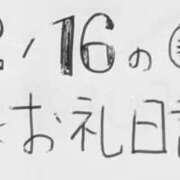 2/16の
お礼日